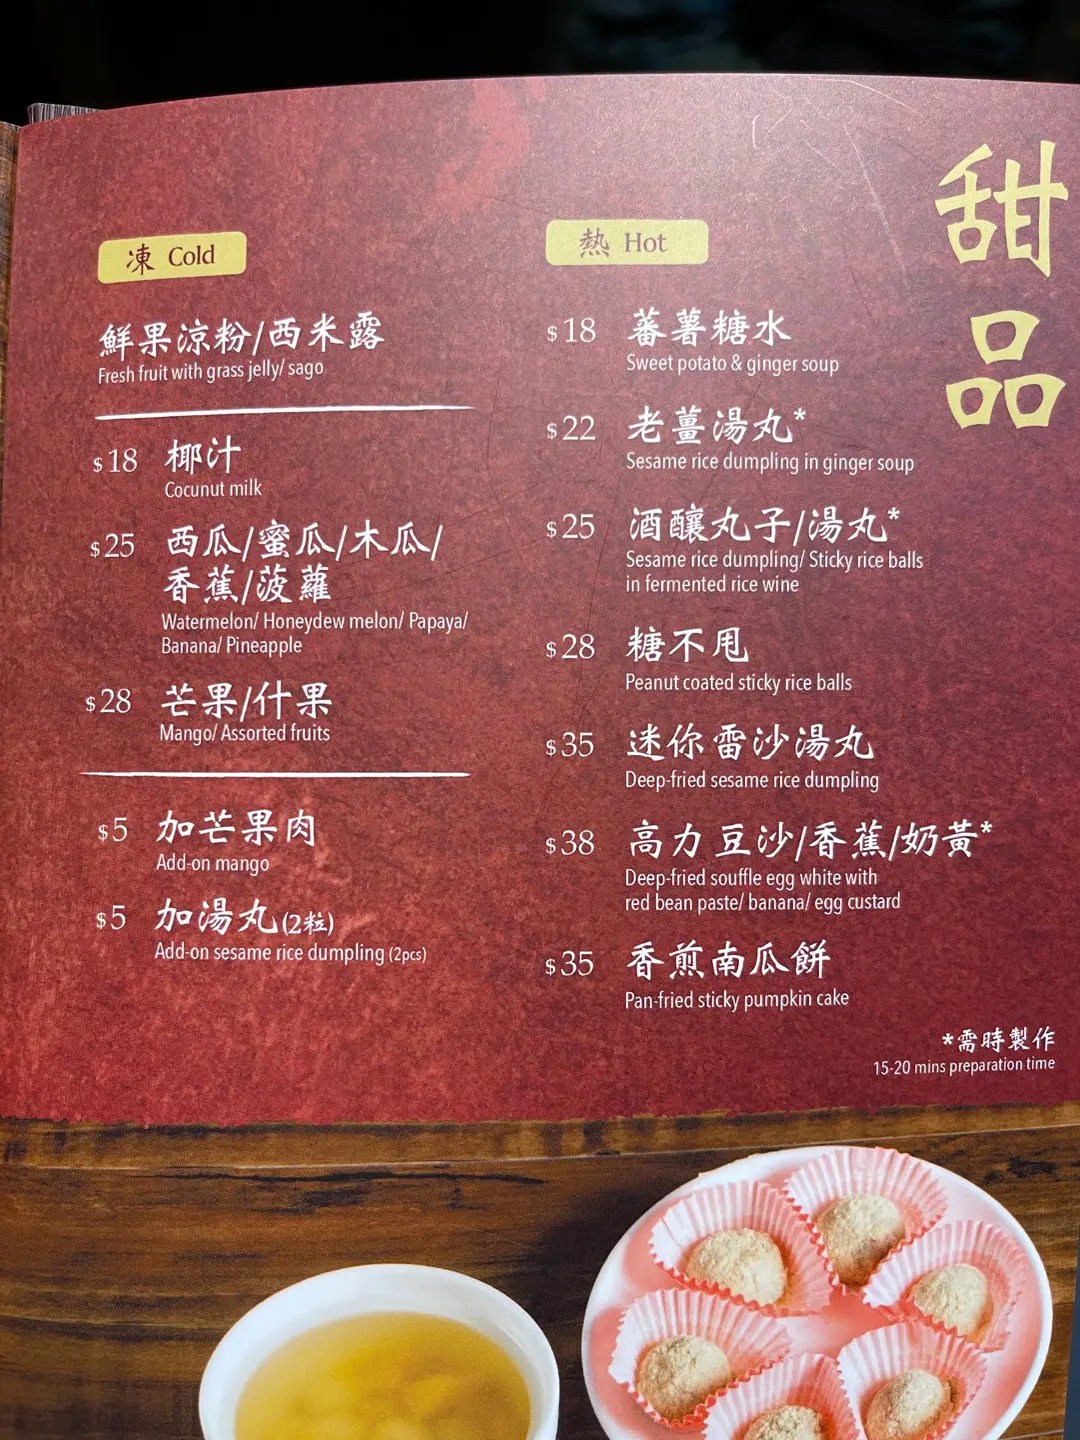 甜品
凍 Cold
鮮果涼粉/西米露
Fresh fruit with grass jelly/ sago
$18 椰汁
Cocunut milk
$25 西瓜/蜜瓜/木瓜/
香蕉/菠蘿
Watermelon/ Honeydew melon/ Papaya/
Banana/ Pineapple
$28 芒果/什果
Mango/ Assorted fruits
$5 加芒果肉
Add-on mango
$5 加湯丸(2粒)
Add-on sesame rice dumpling (2pcs)
熱 Hot
$18 蕃薯糖水
Sweet potato & ginger soup
$22 老薑湯丸*
Sesame rice dumpling in ginger soup
$25 酒釀丸子/湯丸*
Sesame rice dumpling/ Sticky rice balls
in fermented rice wine
$28 糖不甩
Peanut coated sticky rice balls
$35 迷你雷沙湯丸
Deep-fried sesame rice dumpling
$38 高力豆沙/香蕉/奶黃*
Deep-fried souffle egg white with
red bean paste/ banana/ egg custard
$35 香煎南瓜餅
Pan-fried sticky pumpkin cake
*需時製作
15-20 mins preparation time